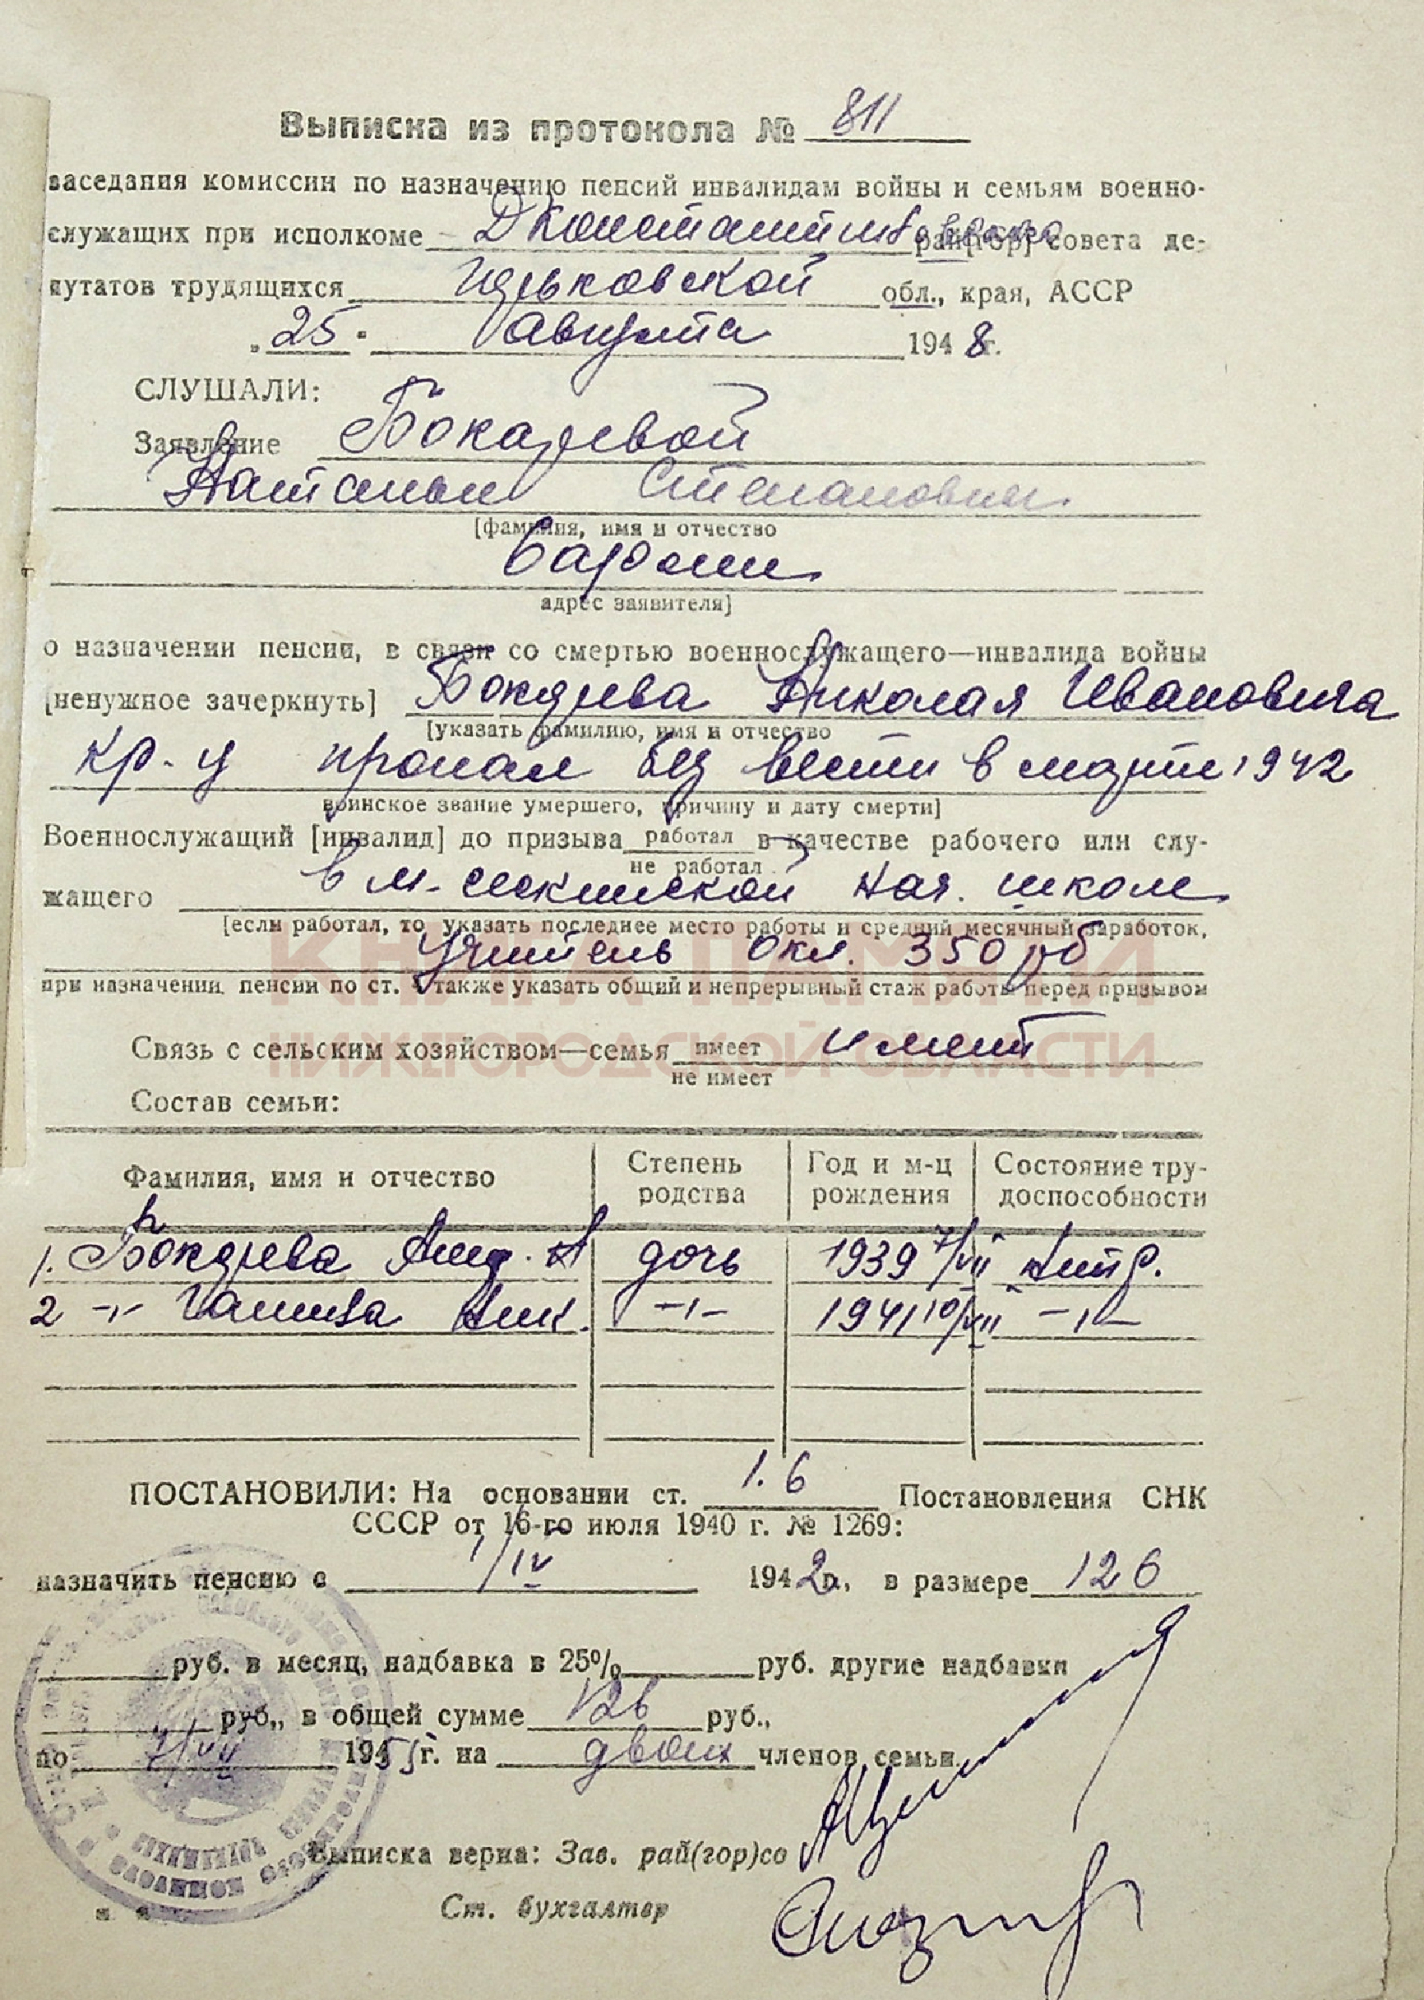 Выписка из протокола № 811
заседания комиссии по назначению пенсий инвалидам войны и семьям военно-
служащих при исполкоме Д Константиновского рай[гор] совета де-
путатов трудящихся Горьковской обл., края, АССР
„ 25 " августа 1948 г.
СЛУШАЛИ:
Заявление Бокаревой
Натальи Степановны
[фамилия, имя и отчество
адрес заявителя]
о назначении пенсии, в связи со смертью военнослужащего—инвалида войны
[ненужное зачеркнуть] Бокарева Николая Ивановича
[указать фамилию, имя и отчество
кр-ц пропал без вести в марте 1942
воинское звание умершего, причину и дату смерти]
Военнослужащий [инвалид] до призыва работал в качестве рабочего или слу-
не работал
жащего в нач. школе
[если работал, то указать последнее место работы и средний месячный заработок,
учитель окл. 350 рб
при назначении пенсии по ст. также указать общий и непрерывный стаж работы перед призывом
КНИГА ПАМЯТИ
НИЖЕГОРОДСКОЙ ОБЛАСТИ
Связь с сельским хозяйством—семья имеет имеет
не имеет
Состав семьи:
Фамилия, имя и отчество Степень родства Год и м-ц рождения Состояние тру-доспособности
1. Бокарева дочь 1939 7/VII нетр.
2 -"- Галина Ник. -"- 1941 10/VII -"-
ПОСТАНОВИЛИ: На основании ст. 1.6 Постановления СНК
СССР от 16-го июля 1940 г. № 1269:
назначить пенсию с 1/IV 1942 г., в размере 126
руб. в месяц, надбавка в 25% руб. другие надбавки
руб., в общей сумме 126 руб.,
по 7/VII 1955 г. на двоих членов семьи.
Выписка верна: Зав. рай(гор)со
Ст. бухгалтер